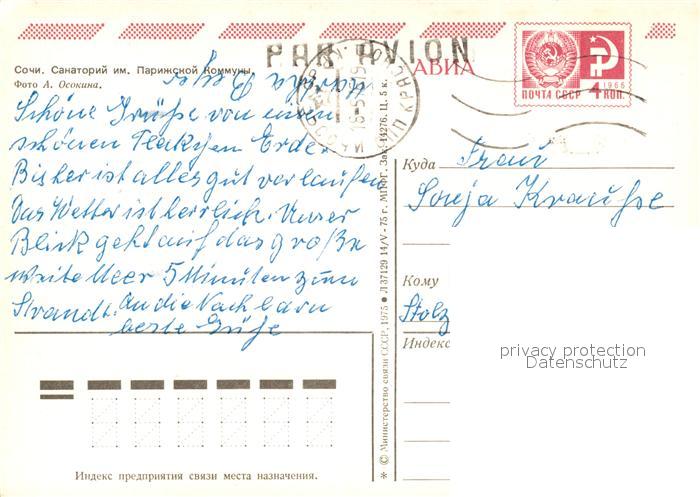 PAR AVION
Сочи. Санаторий им. Парижской Коммуны.
Фото А. Осокина.
АВИА
ПОЧТА СССР
1966
4 КОП.
Schöne Grüße von einem
schönen Fleckchen Erde.
Bisher ist alles gut verlaufen
Das Wetter ist herrlich. Unser
Blick geht auf das große
weite Meer 5 Minuten zum
Strandt. An die Nachbarn
beste Grüße
Куда
Frau
Sonja Krauße
Кому
Stolz
Индекс
privacy protection
Datenschutz
© Министерство связи СССР, 1975 ● Л37129 14/V - 75 г. МПФГ. Зак. 14276. Ц. 5 к.
Индекс предприятия связи места назначения.